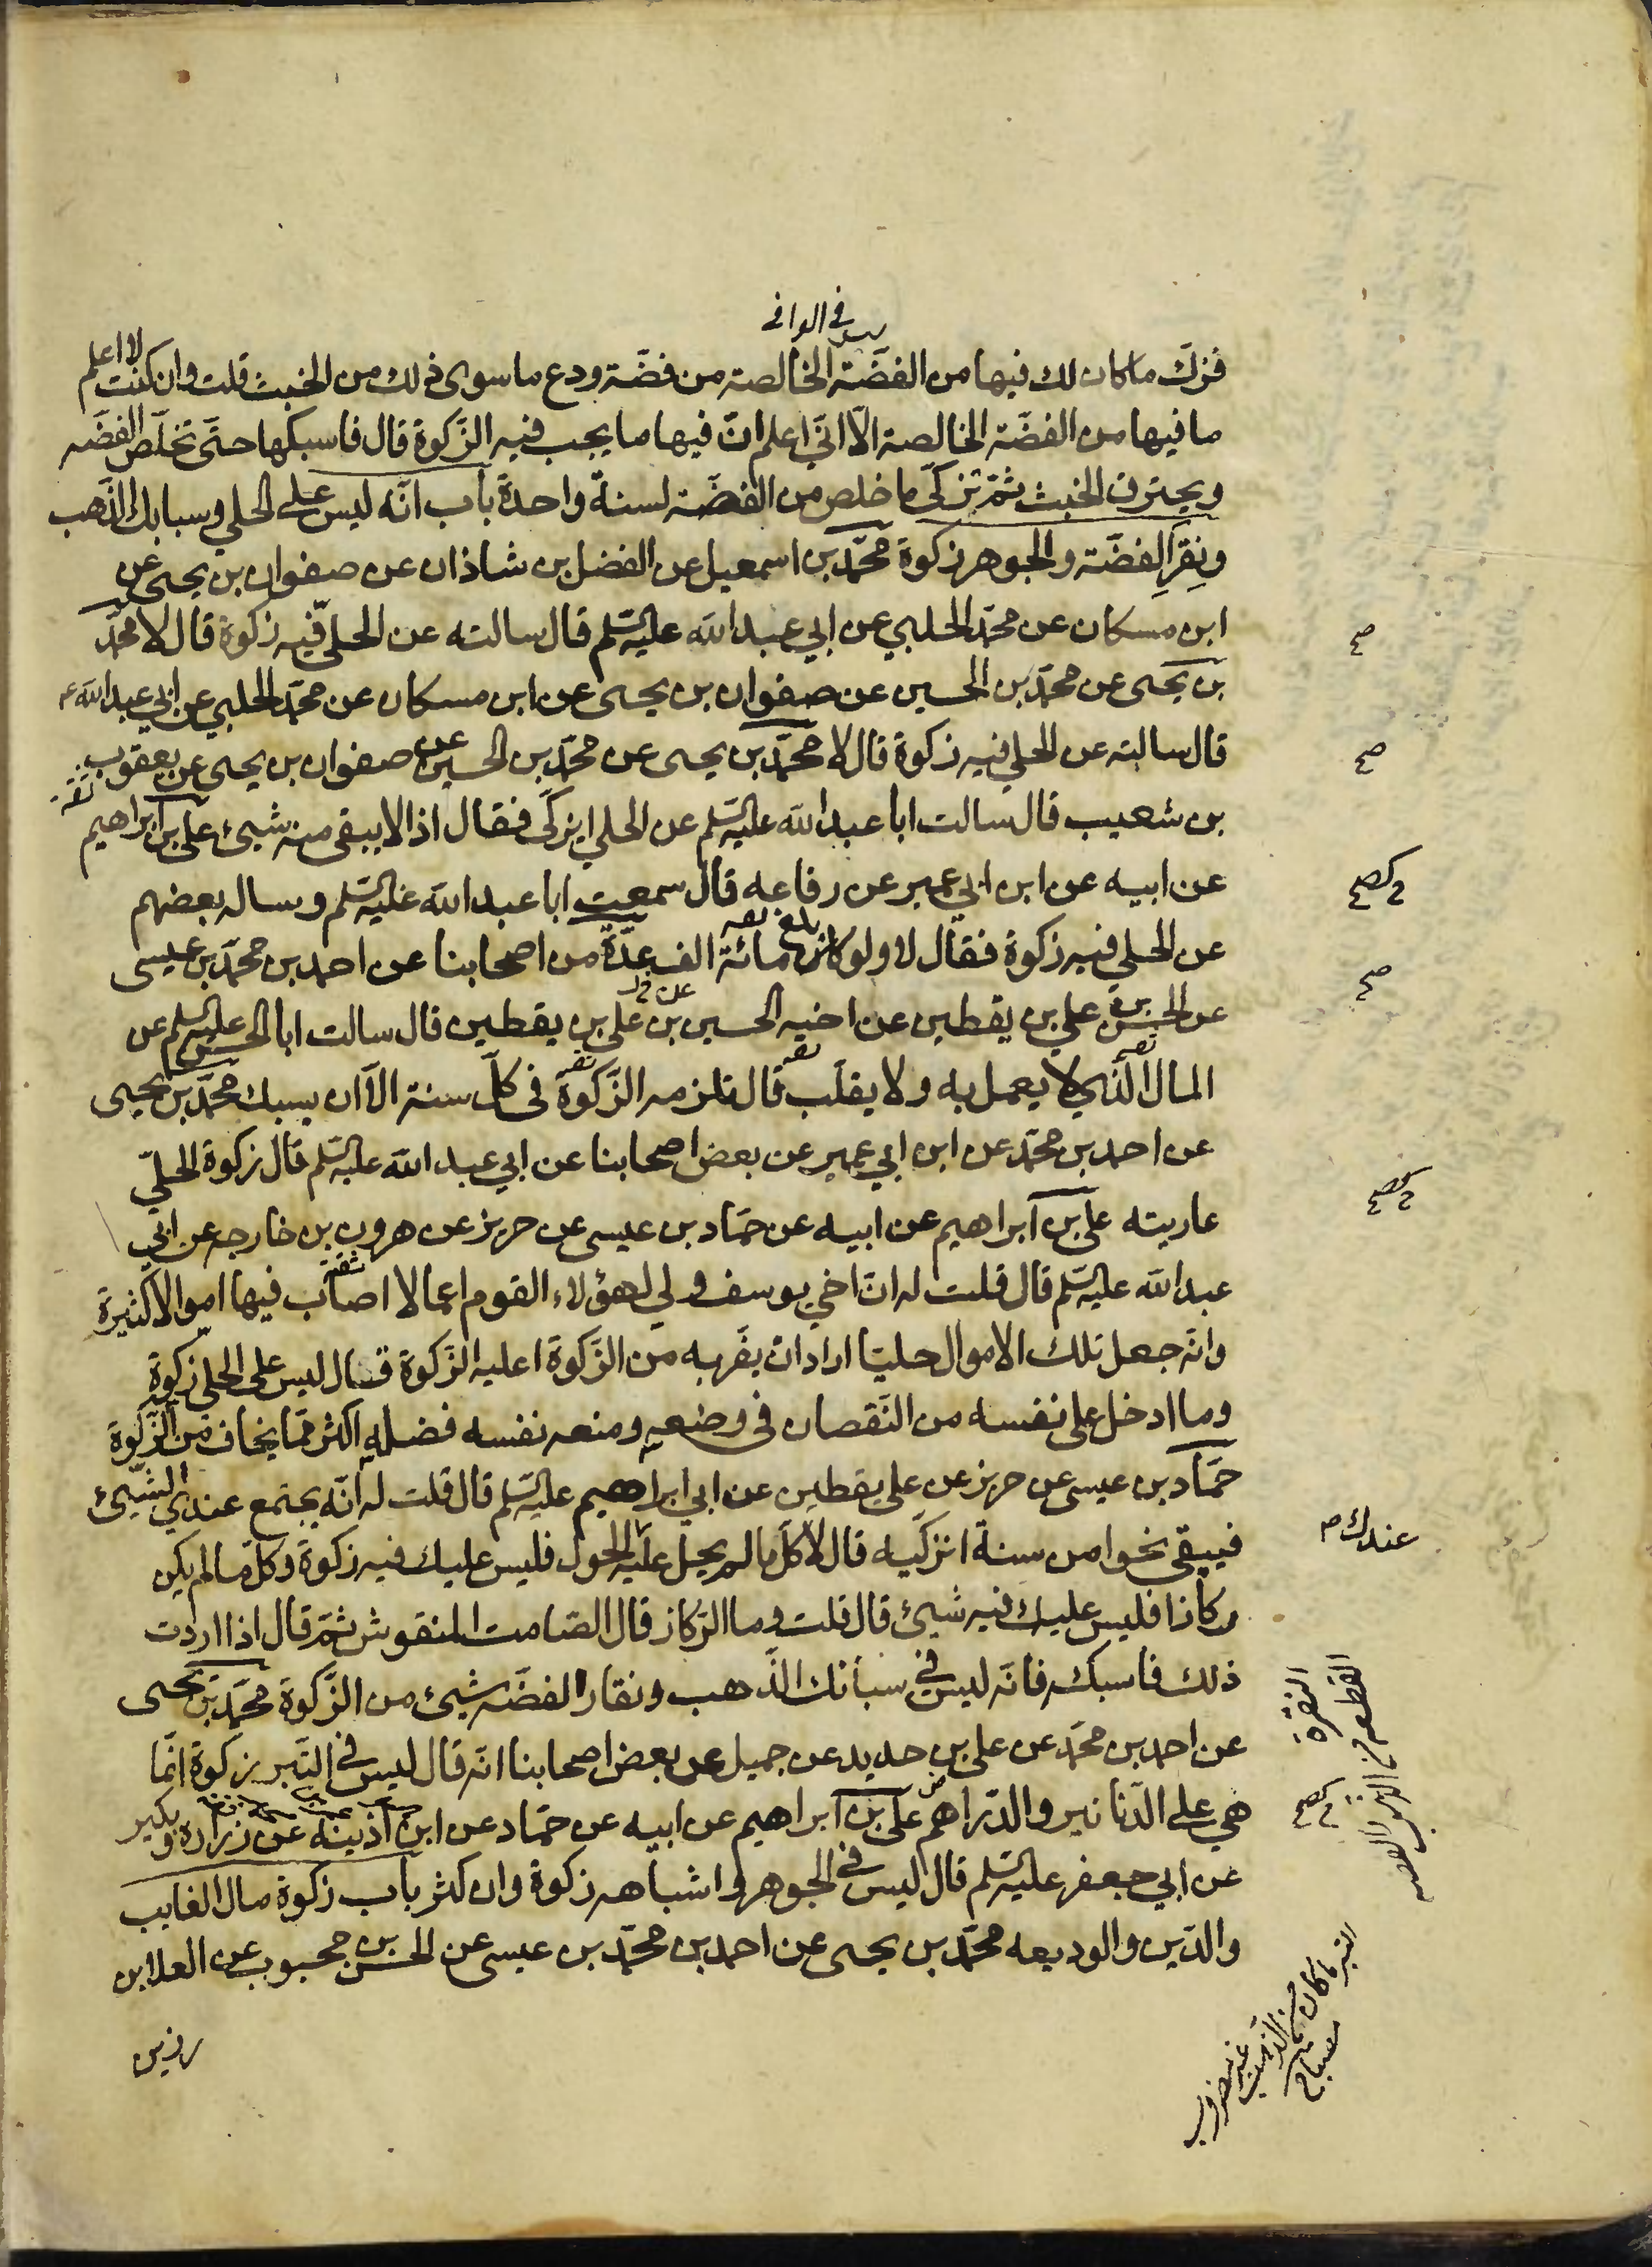 ليس في الوافي
فزكّ ما كان لك فيها من الفضّة الخالصة من فضّة ودع ما سوى ذلك من الخبث قلت وان كنت لا اعلم
ما فيها من الفضّة الخالصة الّا انّي اعلم انّ فيها ما يجب فيه الزّكوة قال فاسبكها حتّى تخلّص الفضّه
ويحترق الخبث ثمّ تزكّي ما خلص من الفضّة لسنة واحدة باب انّه ليس على الحلي وسبايك الذّهب
ونِقَرِ الفضّة والجوهر زكوة محمّد بن اسمعيل عن الفضل بن شاذان عن صفوان بن يحيى عن
ابن مسكان عن محمّد الحلبي عن ابي عبد الله عليه السّلم قال سالته عن الحليّ فيه زكوة قال لا محمّد
بن يحيى عن محمّد بن الحسين عن صفوان بن يحيى عن ابن مسكان عن محمّد الحلبي عن ابي عبد الله ع
قال سالته عن الحلي فيه زكوة قال لا محمّد بن يحيى عن محمّد بن الحسين عن صفوان بن يحيى عن يعقوب
ثقة
بن شعيب قال سالت ابا عبد الله عليه السّلم عن الحلي ايزكّى فقال اذا لا يبقى منه شيئ علي بن ابراهيم
عن ابيه عن ابن ابي عمير عن رفاعه قال سمعت ابا عبد الله عليه السّلم وساله بعضهم
عن الحلي فيه زكوة فقال لا ولو بلغ مائة الف عدّة من اصحابنا عن احمد بن محمّد بن عيسى
عن الحسن بن علي بن يقطين عن اخيه الحسين بن علي بن يقطين قال سالت ابا الحسن عليه السلم عن
المال الّذي لا يعمل به ولا يقلّب قال تلزمه الزّكوة في كلّ سنة الّا ان يسبك محمّد بن يحيى
عن احمد بن محمّد عن ابن ابي عمير عن بعض اصحابنا عن ابي عبد الله عليه السّلم قال زكوة الحليّ
عاريته علي بن ابراهيم عن ابيه عن حمّاد بن عيسى عن حريز عن هرون بن خارجه عن ابي
عبد الله عليه السّلم قال قلت له انّ اخي يوسف ولي لهؤلاء القوم اعمالا اصاب فيها اموالا كثيرة
وانّه جعل تلك الاموال حليّا اراد ان يفرّ به من الزّكوة اعليه الزّكوة قال ليس على الحلي زكوة
وما ادخل على نفسه من النّقصان في وضعه ومنعه نفسه فضله اكثر ممّا يخاف من الزّكوة
حمّاد بن عيسى عن حريز عن علي يقطين عن ابي ابراهيم عليه السّلم قال قلت له انّه يجتمع عندي الشّيئ
فيبقى نحوا من سنة انزكّيه قال لا كلّ ما لم يحل عليه الحول فليس عليك فيه زكوة وكلّ ما لم يكن
ركازا فليس عليك فيه شيئ قال قلت وما الرّكاز قال الصّامت المنقوش ثمّ قال اذا اردت
ذلك فاسبكه فانّه ليس في سبائك الذّهب ونقار الفضّه شيئ من الزّكوة محمّد بن يحيى
عن احمد بن محمّد عن علي بن حديد عن جميل عن بعض اصحابنا انّه قال ليس في التّبر زكوة انّما
هي على الدّنانير والدّراهم علي بن ابراهيم عن ابيه عن حمّاد عن ابن اذينه عن زراره وبكير
عن ابي جعفر عليه السّلم قال ليس في الجوهر واشباهه زكوة وان كثر باب زكوة مال الغايب
والدّين والوديعه محمّد بن يحيى عن احمد بن محمّد بن عيسى عن الحسن بن محبوب عن العلا بن
رزين
عندك م
النقرة
القطعه من
التبر ما كان من الذهب غير مضروب
مصباح